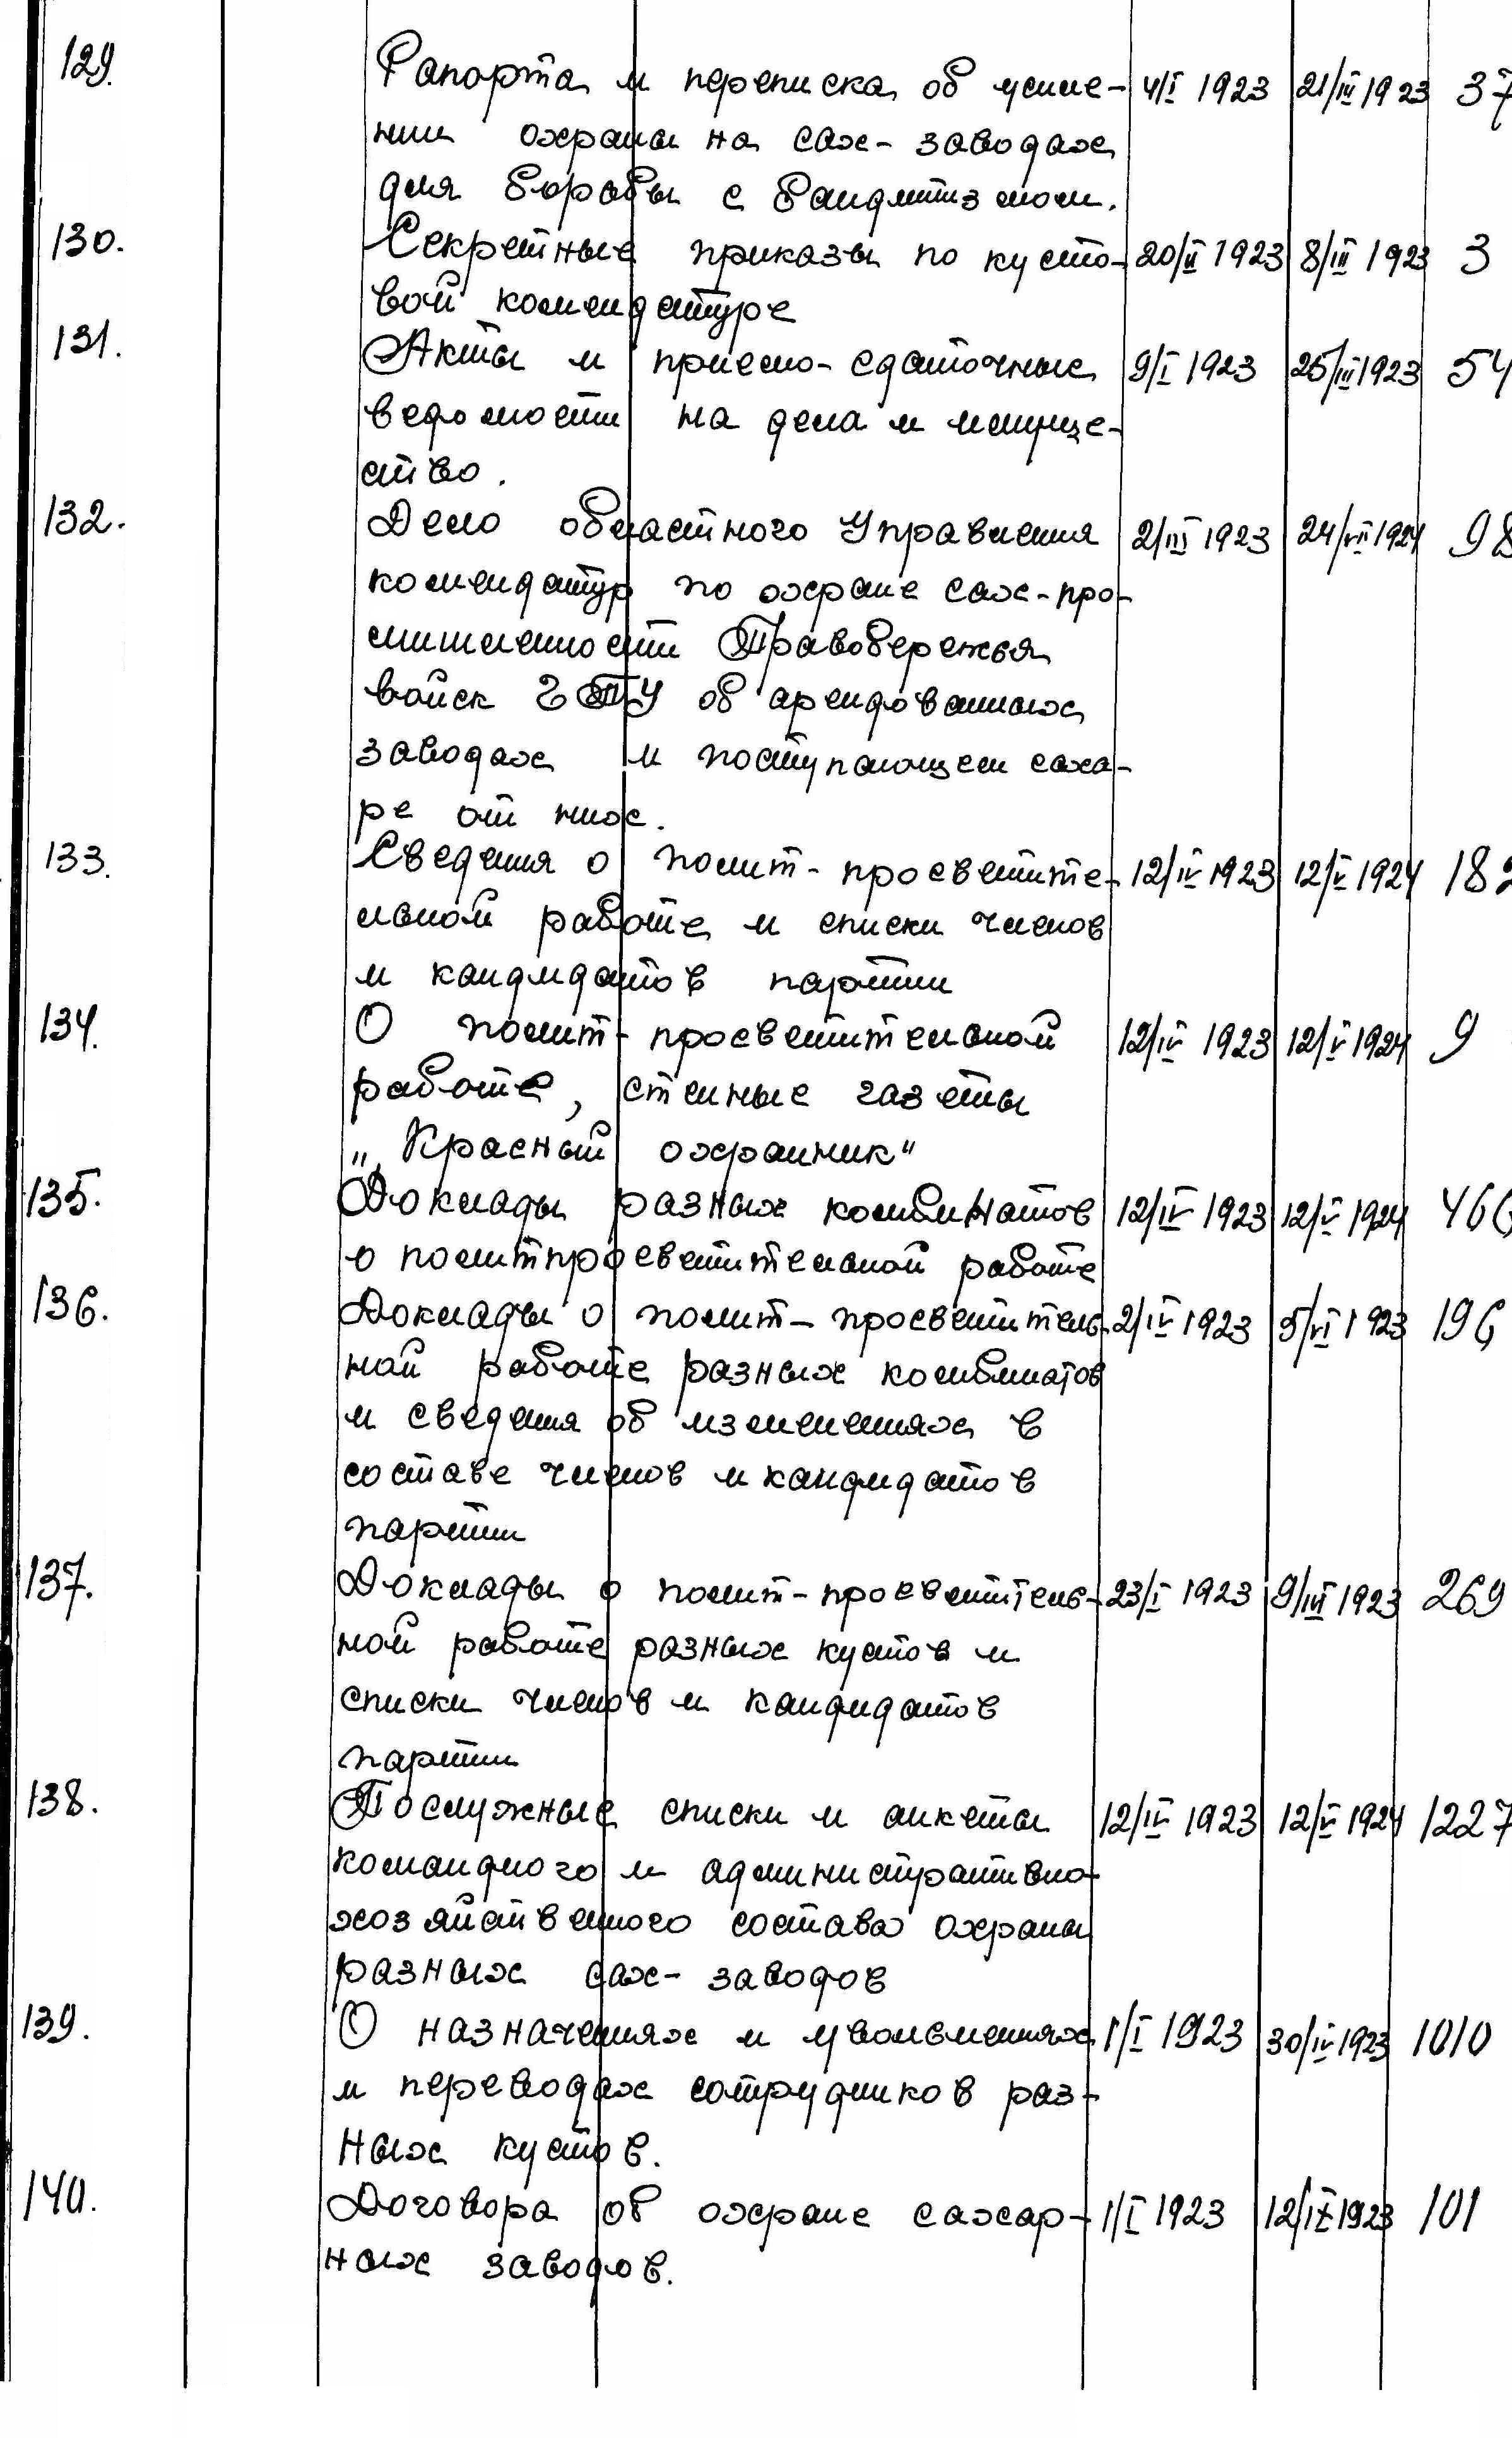 129. Рапорта и переписка об усиле- 4/I 1923 21/III 1923 37
нии охраны на сах-заводах
для борьбы с бандитизмом.
130. Секретные приказы по кусто- 20/II 1923 8/III 1923 3
вой комендатуре
131. Акты и приемо-сдаточные 9/I 1923 25/III 1923 54
ведомости на дела и имуще-
ство.
132. Дело областного Управления 2/III 1923 24/VII 1924 98
комендатур по охране сах-про-
мышленности Правобережья
войск ГПУ об арендованных
заводах и поступающем саха-
ре от них.
133. Сведения о полит-просветите- 12/IV 1923 12/V 1924 182
льной работе и списки членов
и кандидатов партии
134. О полит-просветительной 12/IV 1923 12/V 1924 9
работе, стенные газеты
„Красный охранник"
135. Доклады разных комбинатов 12/IV 1923 12/V 1924 466
о политпросветительной работе
136. Доклады о полит-просветитель- 2/IV 1923 5/VI 1923 196
ной работе разных комбинатов
и сведения об изменениях в
составе членов и кандидатов
партии
137. Доклады о полит-просветитель- 23/I 1923 9/III 1923 269
ной работе разных кустов и
списки членов и кандидатов
партии
138. Послужные списки и анкеты 12/IV 1923 12/V 1924 1227
командного и административно-
хозяйственного состава охраны
разных сах-заводов
139. О назначениях и увольнениях 1/I 1923 30/IV 1923 1010
и переводах сотрудников раз-
ных кустов.
140. Договора об охране сахар- 1/I 1923 12/IX 1923 101
ных заводов.